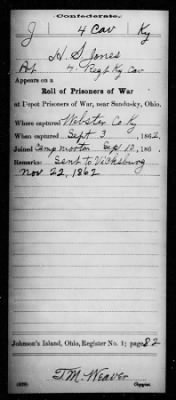 Confederate.
J 4 Cav Ky
H. S. Jones
Pvt 4 Regt Ky Cav
Appears on a
Roll of Prisoners of War
at Depot Prisoners of War, near Sandusky, Ohio.
Where captured Webster Co Ky
When captured Sept 3, 1862.
Joined Camp Morton Sep 10, 186 .
Remarks: Sent to Vicksburg
Nov 22, 1862
Johnson's Island, Ohio, Register No. 1; page 82
T. M. Weaver
Copyist.